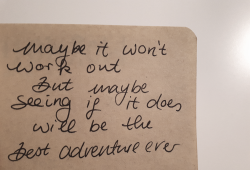 maybe it won't
work out
But maybe
seeing if it does
will be the
Best adventure ever